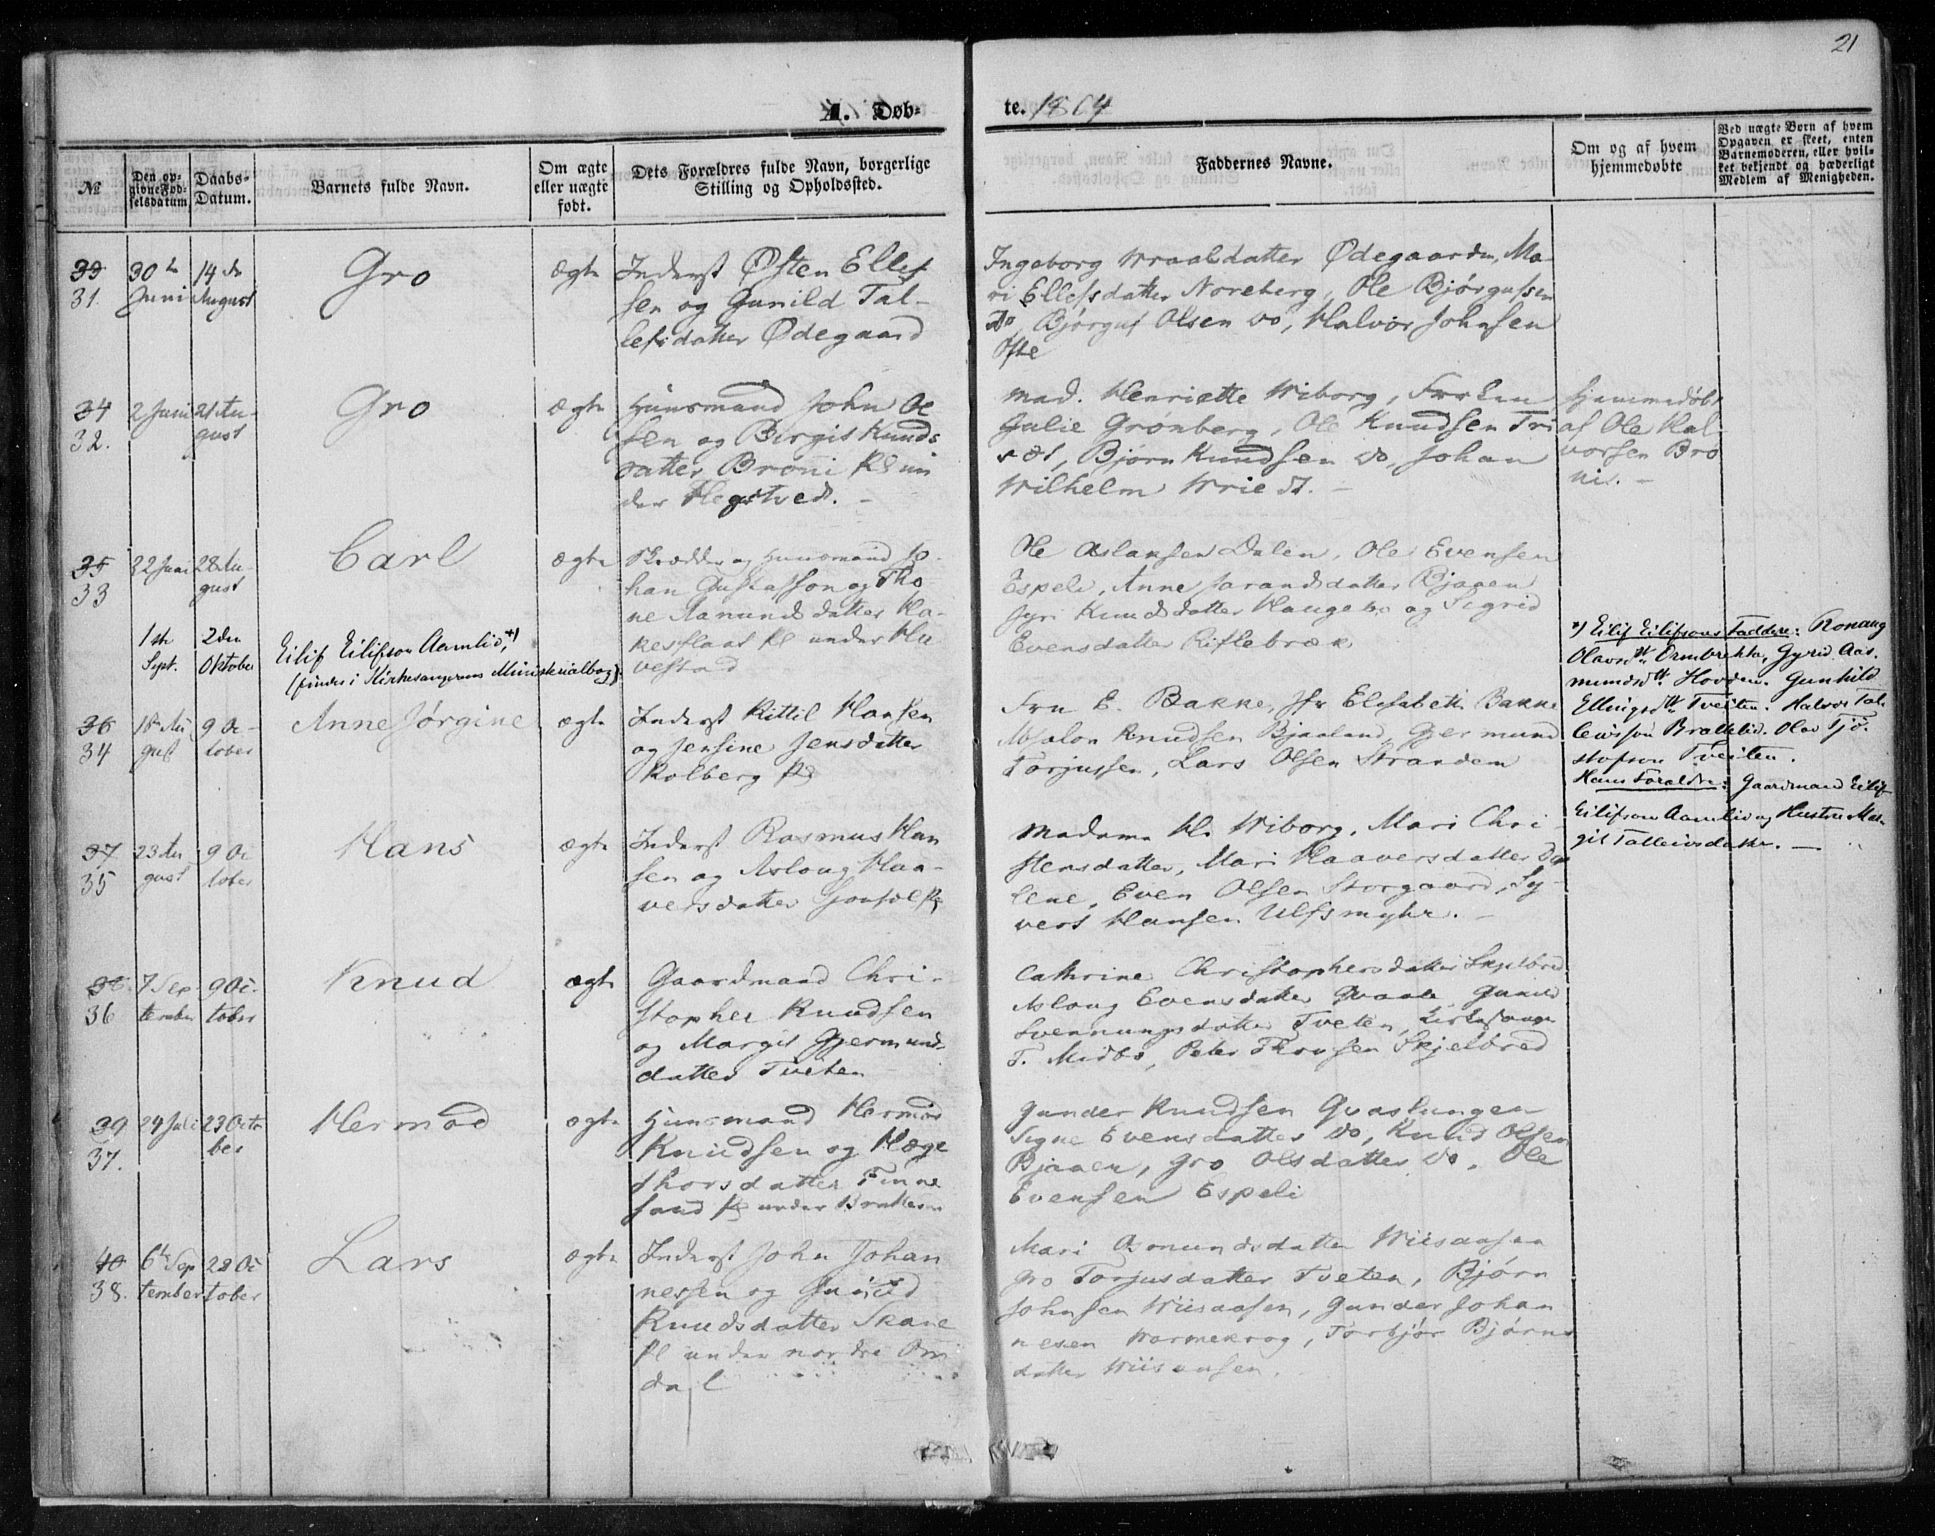 21
A. Døb-
te. 1864
№
Den op-
givne Fød-
selsdatum
Daabs-
Datum.
Barnets fulde Navn.
Om ægte
eller uægte
født.
Dets Forældres fulde Navn, borgerlige
Stilling og Opholdssted.
Faddernes Navne.
Om og af hvem
hjemmedøbte
Ved uægte Børn af hvem
Opgaven er skeet, enten
Barnemoderen, eller hvil-
ket bekjendt og hæderligt
Medlem af Menigheden.
33
31.
30te
Juni
14de
August
Gro
ægte
Inderst Østen Ellef
sen og Gunild Tal-
lefsdatter Ødegaard
Ingeborg Wraalsdatter Ødegaarden, Ma-
ri Ellefsdatter Noreberg, Ole Bjørgufsen
Do, Bjørguf Olsen Do, Halvor Johnsen
Ofte
34
32.
2 Juni
21 Au-
gust
Gro
ægte
Huusmand John Ol
sen og Birgit Knuds
datter Broni Pl un
der Hegstved. -
Mad. Henriette Wiborg, Frøken
Julie Grønberg, Ole Knudsen Tri
sæt, Bjørn Knudsen Do, Johan
Wilhelm Wriedt. -
Hjemmedøbt
af Ole Hal-
vorsen Bro
ni. -
35
33
22 Juni
28 Au-
gust
Carl
ægte
Skrædder og Huusmand Jo-
han Gustafson og Tho-
ne Aamundsdatter Ha-
kesflaat Pl under Hu
vestad
Ole Aslaksen Dalen, Ole Evensen
Espeli, Anne Jarandsdatter Bjaaen
Gyri Knudsdatter Haugebo og Sigrid
Evensdatter Riflebræk
1ste
Sept.
2den
Oktober
Eilif Eilifson Aamlid, *)
(findes i Kirkesangerens Ministerialbog).
*) Eilif Eilifsons Faddere: Ronaug
Olavsdtr Ormbrekke, Gyrid Aas-
mundsdtr. Hovden. Gunhild
Ellingsdtr Tveiten. Halvor Tal-
leivson Bratlelid. Olav Tjø-
stofson Tveiten.
Hans Forældre: Gaardmand Eilif
Eilifson Aamlid og Hustru Mar-
git Talleivsdatter. -
36
34
18 Au
gust
9 Oc-
tober
Anne Jørgine
ægte
Inderst Kittil Hansen
og Jensine Jensdatter
Kolberg Pl
Fru E. Bakke, Jfr Elisabeth Bakke
Absalon Knudsen Bjaaland, Gjermund
Torjussen, Lars Olsen Stranden
37
35
23 Au
gust
9 Oc
tober
Hans
ægte
Inderst Rasmus Han
sen og Aslaug Haa-
versdatter
Madame H. Wiborg, Mari Chri-
stensdatter, Mari Haaversdatter Da
lene, Even Olsen Storgaard, Sy-
vert Hansen Ulfsmyhr. -
38.
36
7 Sep
tember
9 Oc-
tober
Knud
ægte
Gaardmand Chri-
stopher Knudsen
og Margit Gjermunds-
datter Tveten
Cathrine Christophersdatter Skjelbred
Aslaug Evensdatter Gvaale, Gunild
Svennungsdatter Tveten, Kirkesanger
T. Midbø, Peter Thovsen Skjelbred
39
37.
24 Juli
23 Octo
ber
Hermod
ægte
Huusmand Hermod
Knudsen og Hæge
Thorsdatter Finne
sand Pl under
Gunder Knudsen Gvaslungen
Signe Evensdatter Do, Knud Olsen
Bjaaen, Gro Olsdatter Do, Ole
Evensen Espeli
40
38.
6te Sep
tember
23 Oc
tober
Lars
ægte
Inderst John Johan
nessen og Gunild
Knudsdatter Skare
Pl under nordre Om
dal
Mari Osmundsdatter Wiisaasen
Gro Torjusdatter Tveten, Bjørn
Johnsen Wiisaasen, Gunder Johan
nesen Varmekrog, Torbjør Bjørns
datter Wiisaasen.